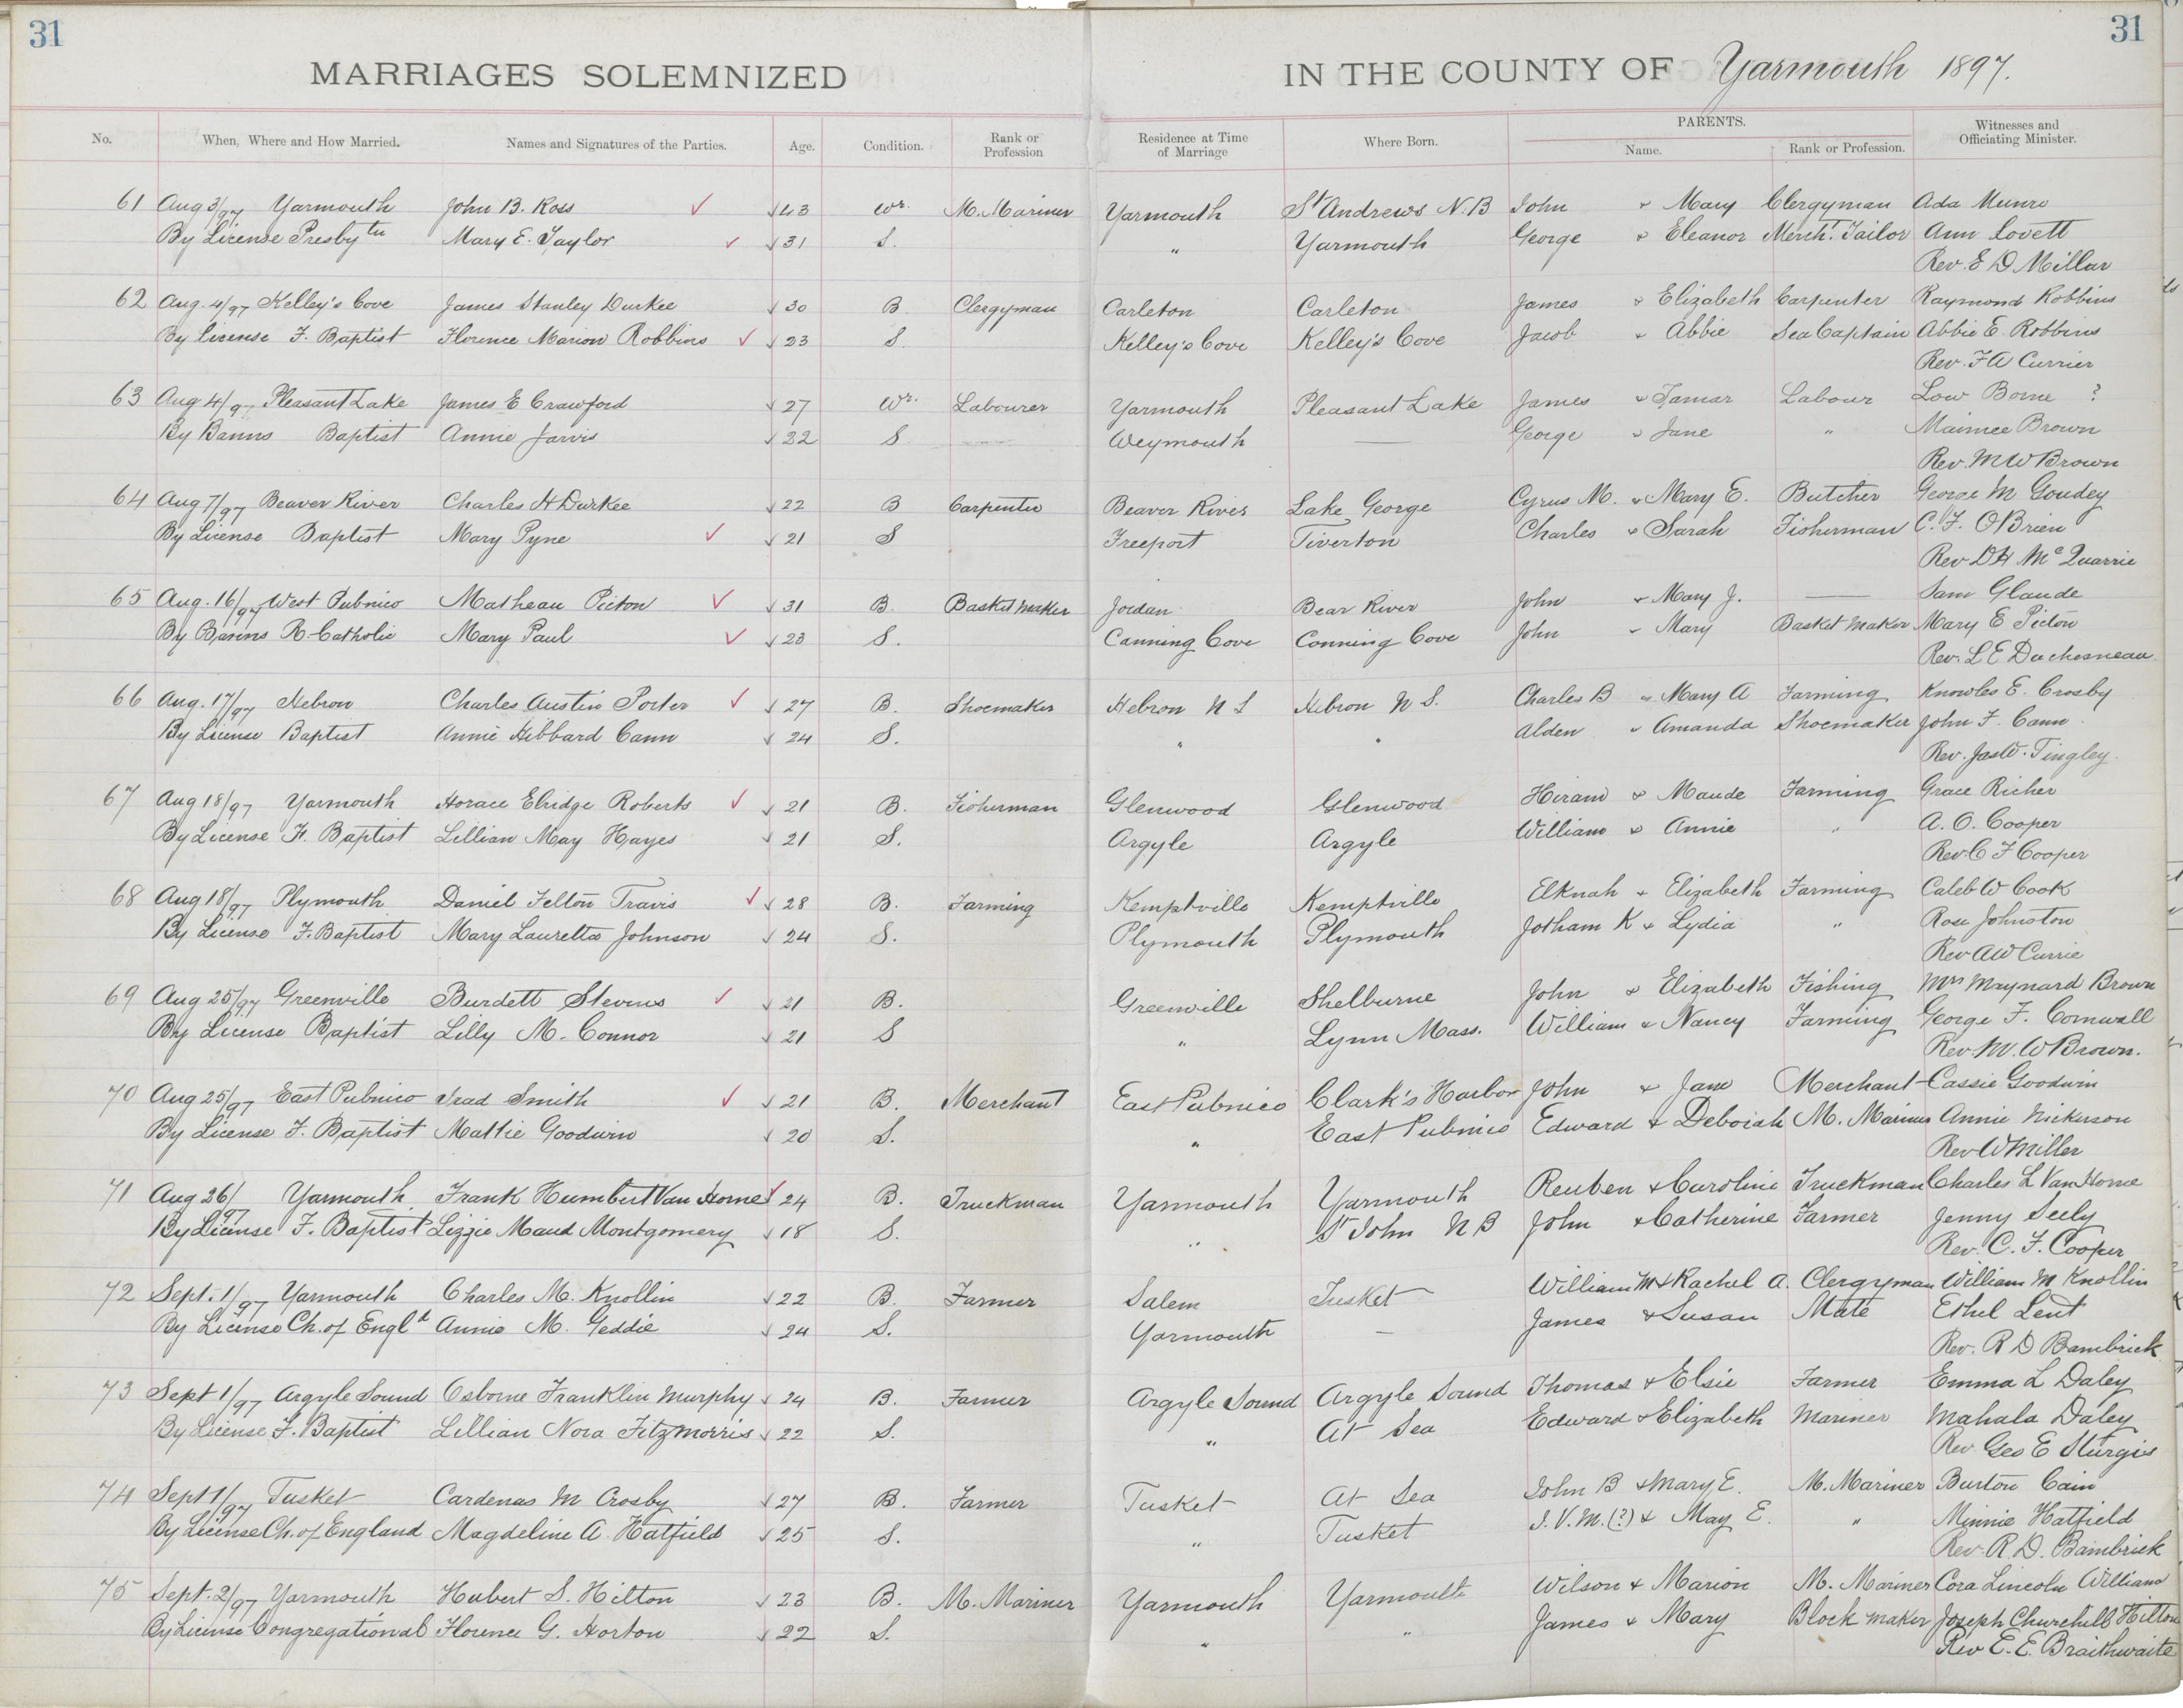 31 31
MARRIAGES SOLEMNIZED IN THE COUNTY OF Yarmouth 1897.
No. When, Where and How Married. Names and Signatures of the Parties. Age. Condition. Rank or Profession Residence at Time of Marriage Where Born. PARENTS. Name. Rank or Profession. Witnesses and Officiating Minister.
61 Aug 3/97 Yarmouth John B. Ross 43 Wr. M. Mariner Yarmouth St Andrews N.B John & Mary Clergyman Ada Munro
By License Presbytn Mary E. Taylor 31 S. " Yarmouth George & Eleanor Mercht. Tailor Ann Lovett
Rev. E D Millar
62 Aug. 4/97 Kelley's Cove James Stanley Durkee 30 B Clergyman Carleton Carleton James & Elizabeth Carpenter Raymond Robbins
By License F. Baptist Florence Marion Robbins 23 S. Kelley's Cove Kelley's Cove Jacob & Abbie Sea Captain Abbie E. Robbins
Rev. F A Currier
63 Aug 4/97 Pleasant Lake James E Crawford 27 Wr. Labourer Yarmouth Pleasant Lake James & Tamar Labour Low Borne ?
By Banns Baptist Annie Jarvis 22 S Weymouth — George & Jane " Maimee Brown
Rev. M W Brown
64 Aug 7/97 Beaver River Charles H Durkee 22 B Carpenter Beaver River Lake George Cyrus M. & Mary E. Butcher George M Goudey
By License Baptist Mary Pyne 21 S Freeport Tiverton Charles & Sarah Fisherman C. F. OBrien
Rev D H McQuarrie
65 Aug. 16/97 West Pubnico Matheau Picton 31 B. Basket Maker Jordan Bear River John & Mary J. — Sam Glaude
By Banns R. Catholic Mary Paul 23 S. Canning Cove Conning Cove John & Mary Basket Maker Mary E Picton
Rev. L E Duchesneau
66 Aug. 17/97 Hebron Charles Austin Porter 27 B. Shoemaker Hebron N S Hebron N S. Charles B & Mary A Farming Knowles E. Crosby
By License Baptist Annie Hibbard Cann 24 S. " " Alden & Amanda Shoemaker John F. Cann
Rev. Jas W. Tingley.
67 Aug 18/97 Yarmouth Horace Elridge Roberts 21 B. Fisherman Glenwood Glenwood Hiram & Maude Farming Grace Richer
By License F. Baptist Lillian May Hayes 21 S. Argyle Argyle William & Annie " A. O. Cooper
Rev C F Cooper
68 Aug 18/97 Plymouth Daniel Felton Travis 28 B. Farming Kemptville Kemptville Elknah & Elizabeth Farming Caleb W Cook
By License F. Baptist Mary Lauretta Johnson 24 S. Plymouth Plymouth Jotham K & Lydia " Rose Johnston
Rev A W Currie
69 Aug 25/97 Greenville Burdett Stevens 21 B. Greenville Shelburne John & Elizabeth Fishing Mrs Maynard Brown
By License Baptist Lilly M. Connor 21 S " Lynn Mass. William & Nancy Farming George F. Cornwall
Rev. M. W Brown.
70 Aug 25/97 East Pubnico Irad Smith 21 B. Merchant East Pubnico Clark's Harbor John & Jane Merchant Cassie Goodwin
By License F. Baptist Mattie Goodwin 20 S. " East Pubnico Edward & Deborah M. Mariner Annie Nickerson
Rev W Miller
71 Aug 26/97 Yarmouth Frank Humbert Van Horne 24 B. Truckman Yarmouth Yarmouth Reuben & Caroline Truckman Charles L Van Horne
By License F. Baptist Lizzie Maud Montgomery 18 S. " St John N B John & Catherine Farmer Jenny Seely
Rev. C. F. Cooper
72 Sept. 1/97 Yarmouth Charles M. Knollin 22 B. Farmer Salem Tusket William M & Rachel A. Clergyman William M Knollin
By License Ch. of Engld Annie M. Geddie 24 S. Yarmouth — James & Susan Mate Ethel Lent
Rev. R D Bambrick
73 Sept 1/97 Argyle Sound Osborne Franklin Murphy 24 B. Farmer Argyle Sound Argyle Sound Thomas & Elsie Farmer Emma L Daley
By License F. Baptist Lillian Nora Fitzmorris 22 S. " At Sea Edward & Elizabeth Mariner Mahala Daley
Rev Geo E Sturgis
74 Sept 1/97 Tusket Cardenas M Crosby 27 B. Farmer Tusket At Sea John B & Mary E. M. Mariner Burton Cain
By License Ch. of England Magdeline A. Hatfield 25 S. " Tusket I. V. M. (?) & May E. " Minnie Hatfield
Rev. R. D. Bambrick
75 Sept. 2/97 Yarmouth Hubert S. Hilton 23 B. M. Mariner Yarmouth Yarmouth Wilson & Marion M. Mariner Cora Lincoln Williams
By License Congregational Florence G. Horton 22 S. " " James & Mary Block maker Joseph Churchill Hilton
Rev E. E. Braithwaite